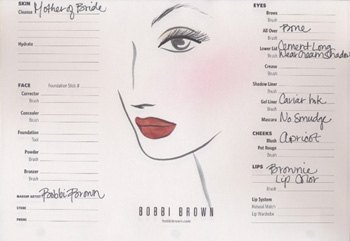 SKIN
Cleanse Mother of Bride
Hydrate
FACE Foundation Stick #
Corrector
Brush
Concealer
Brush
Foundation
Tool
Powder
Brush
Bronzer
Brush
MAKEUP ARTIST Bobbi Brown
STORE
PHONE
BOBBI BROWN
bobbibrown.com
EYES
Brows
Brush
All Over Bone
Brush
Lower Lid Cement Long
Brush Wear Cream Shadow
Crease
Brush
Shadow Liner
Brush
Gel Liner Caviar Ink
Brush
Mascara No Smudge
CHEEKS
Blush Apricot
Brush
Pot Rouge
Brush
LIPS Brownie
Lip Color
Lip System
Natural Match
Lip Wardrobe